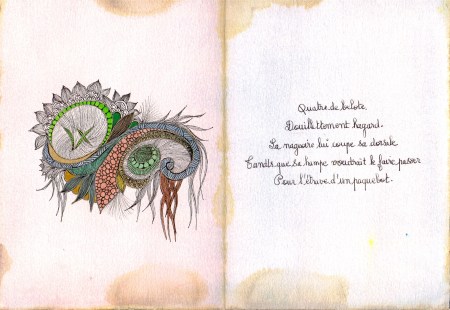 Quatre de belote,
Douillettement hagard.
La nageoire lui coupe sa dorsale
Tandis que sa hampe voudrait le faire passer
Pour l'étrave d'un paquebot.